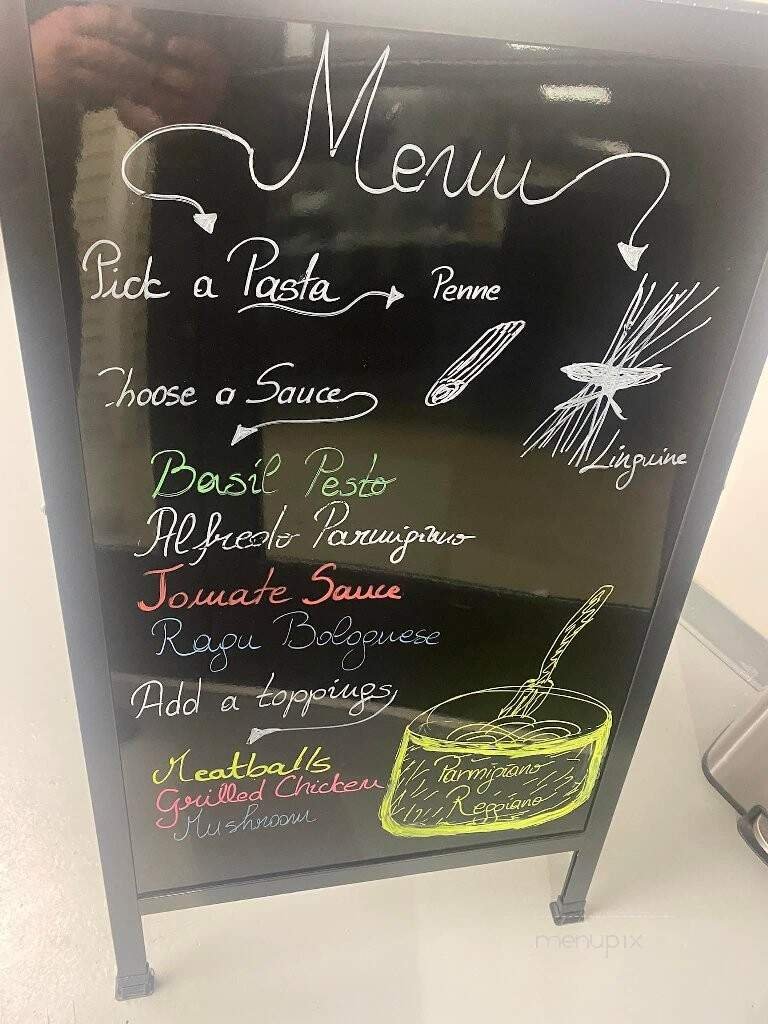 Menu
Pick a Pasta
Penne
Linguine
Choose a Sauce
Basil Pesto
Alfredo Parmigiano
Tomate Sauce
Ragu Bolognese
Add a toppings
Meatballs
Grilled Chicken
Mushroom
Parmigiano
Reggiano
menupix